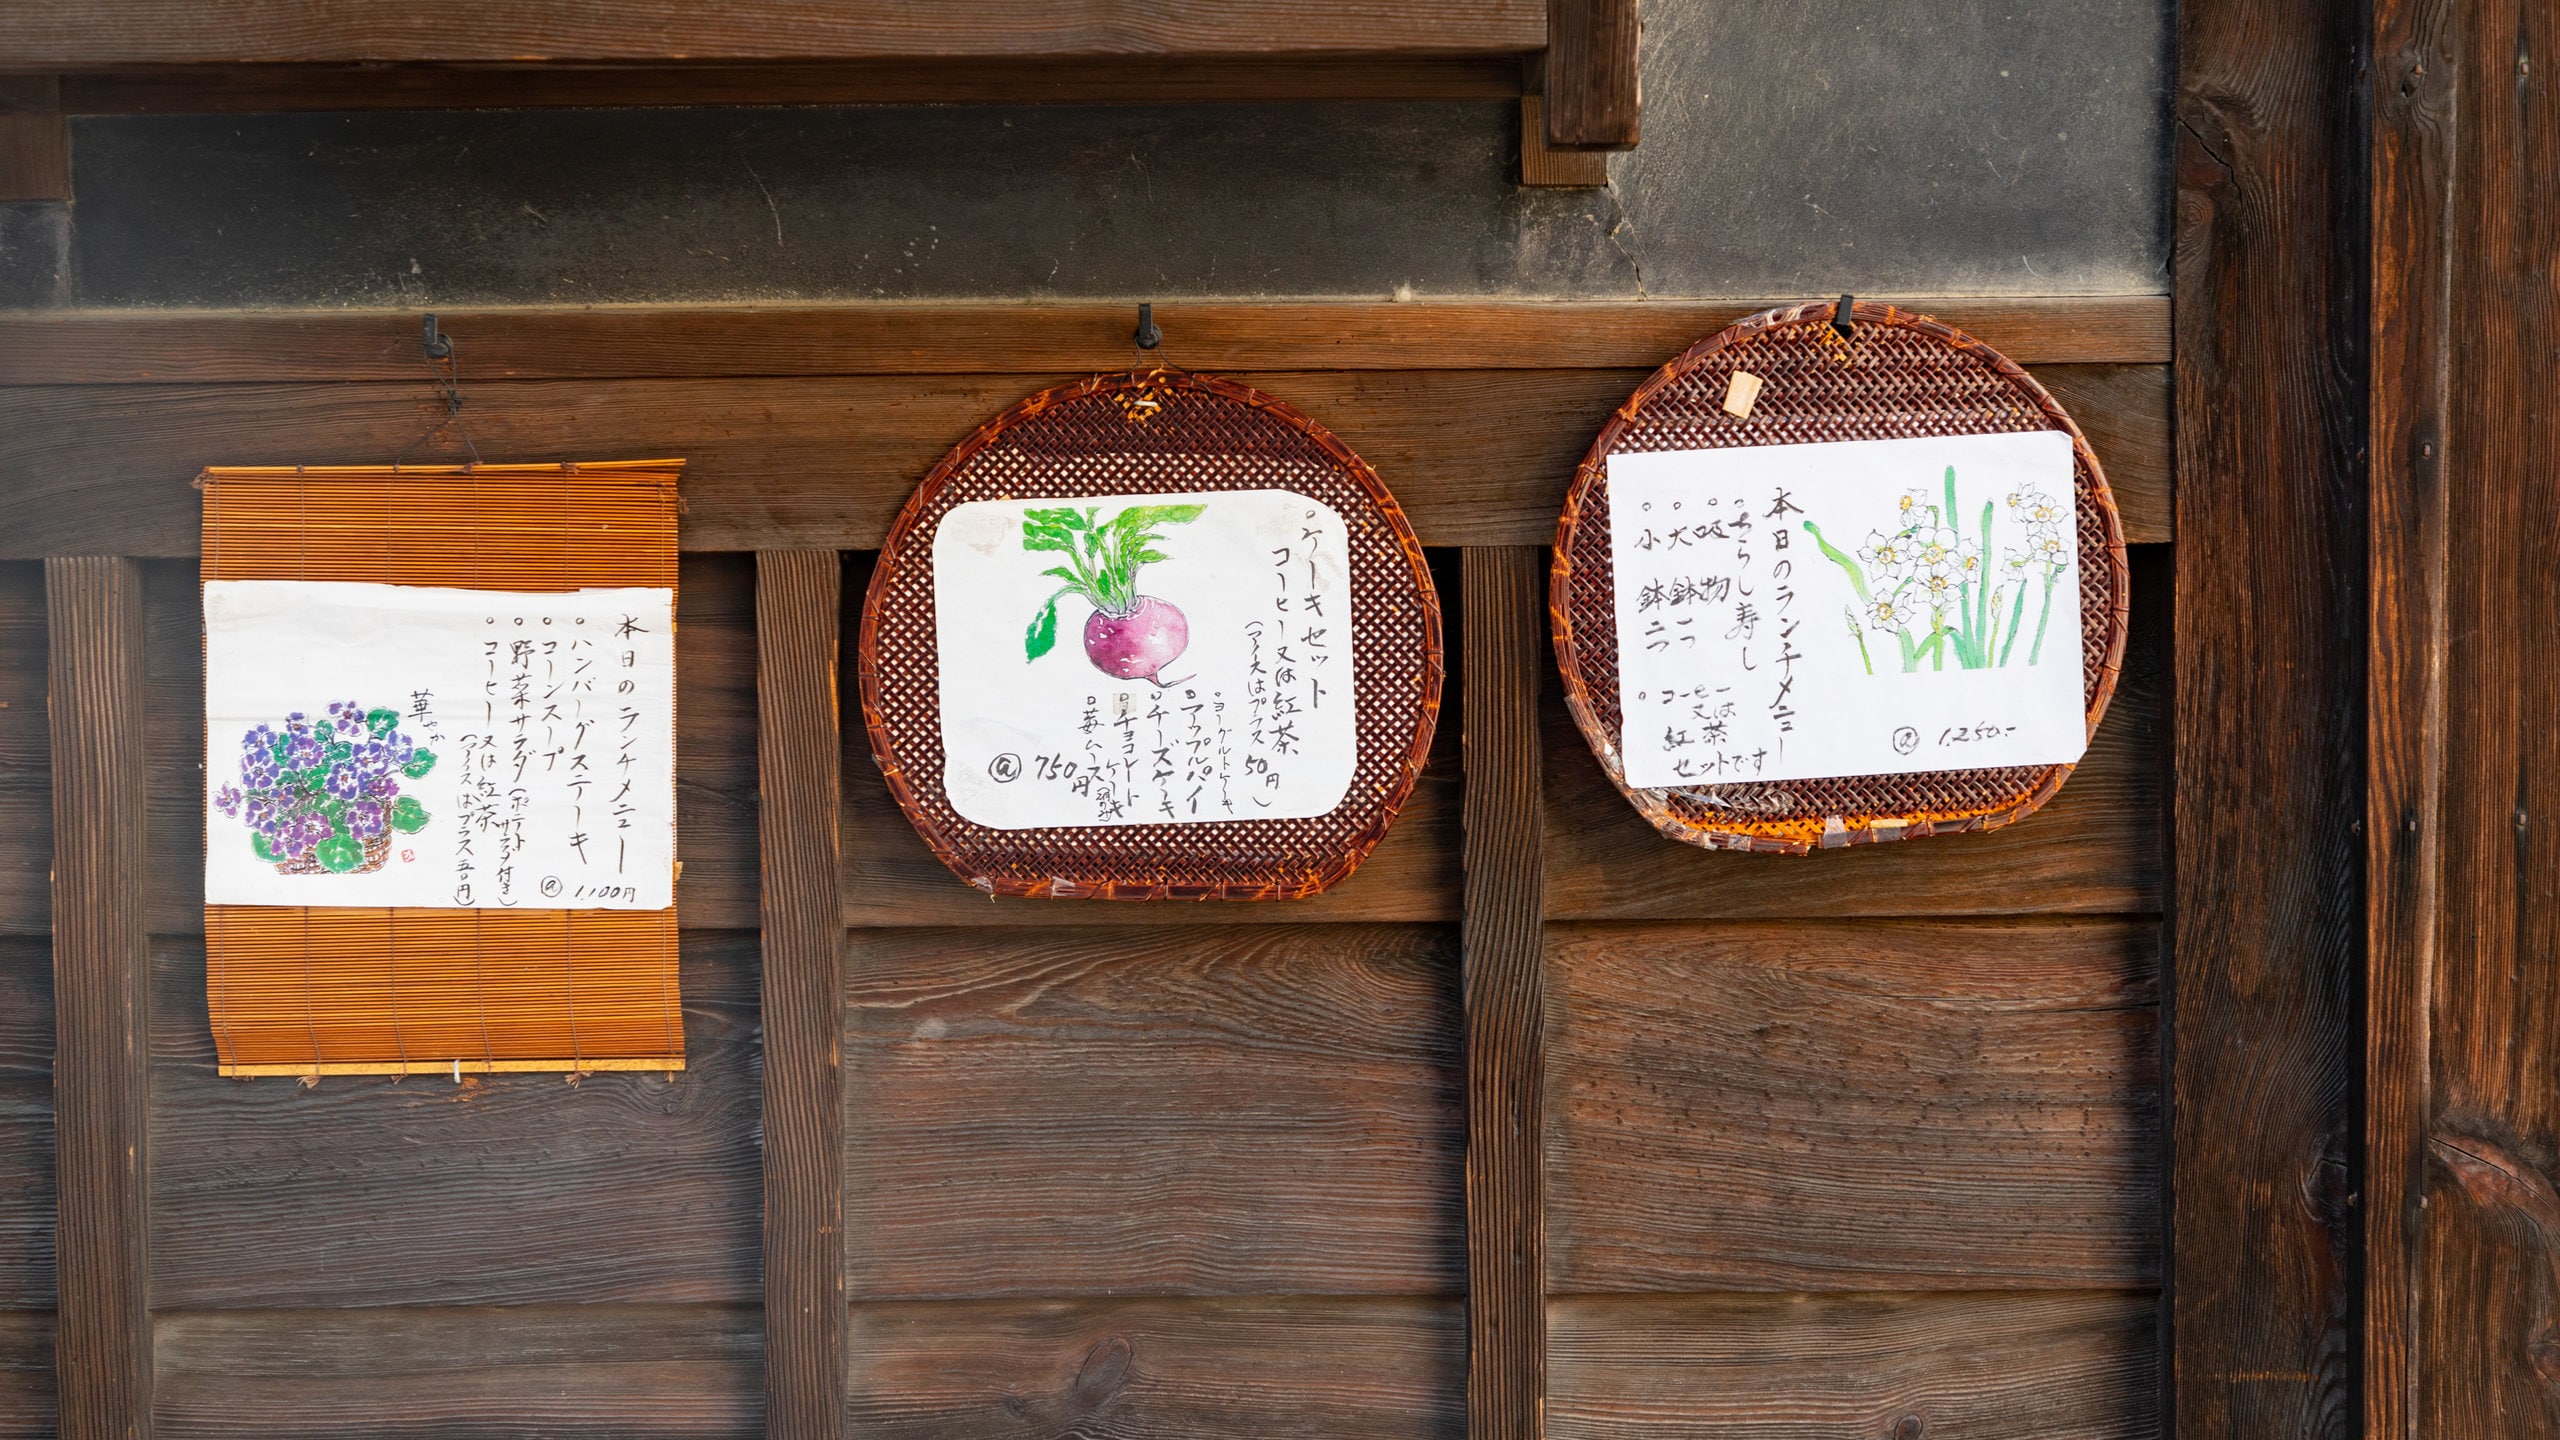 本日のランチメニュー
○ハンバーグステーキ
○コーンスープ
○野菜サラダ(ポテトサラダ付き)
○コーヒー又は紅茶
(アイスはプラス五〇円)
@ 1,100円
華やか
○ケーキセット
コーヒー又は紅茶
(アイスはプラス50円)
○ヨーグルトケーキ
○アップルパイ
○チーズケーキ
○チョコレートケーキ
○苺ムース
@ 750円
本日のランチメニュー
○ちらし寿し
○吸物
○大鉢一つ
○小鉢二つ
○コーヒー又は紅茶
セットです
@ 1,250.-